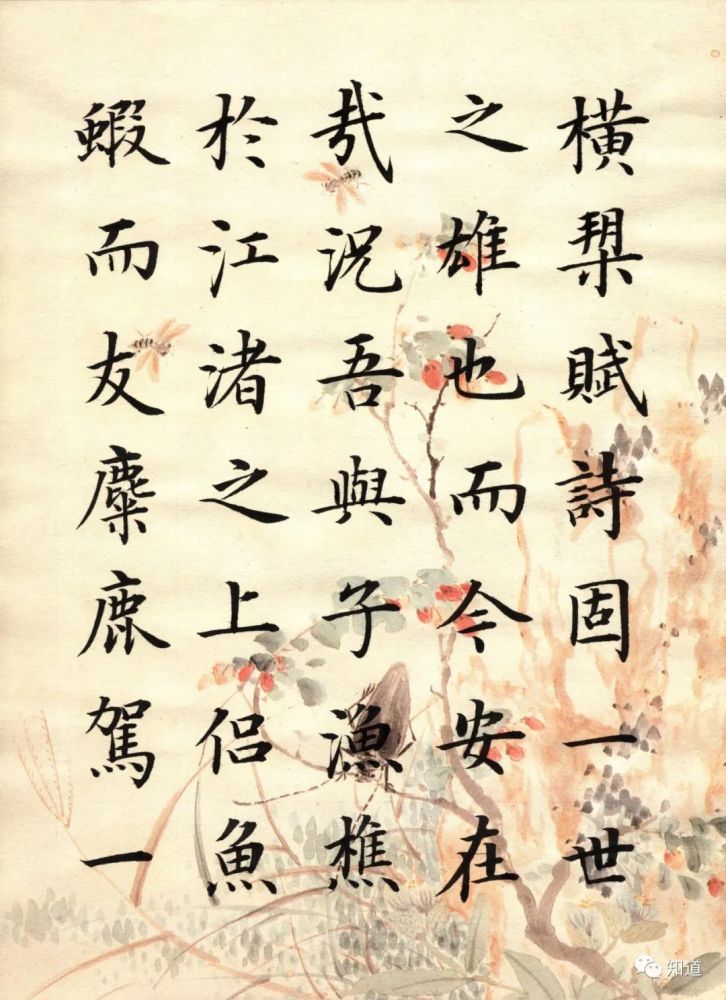 橫槊賦詩固一世
之雄也而今安在
哉況吾與子漁樵
於江渚之上侶魚
蝦而友麋鹿駕一
知道